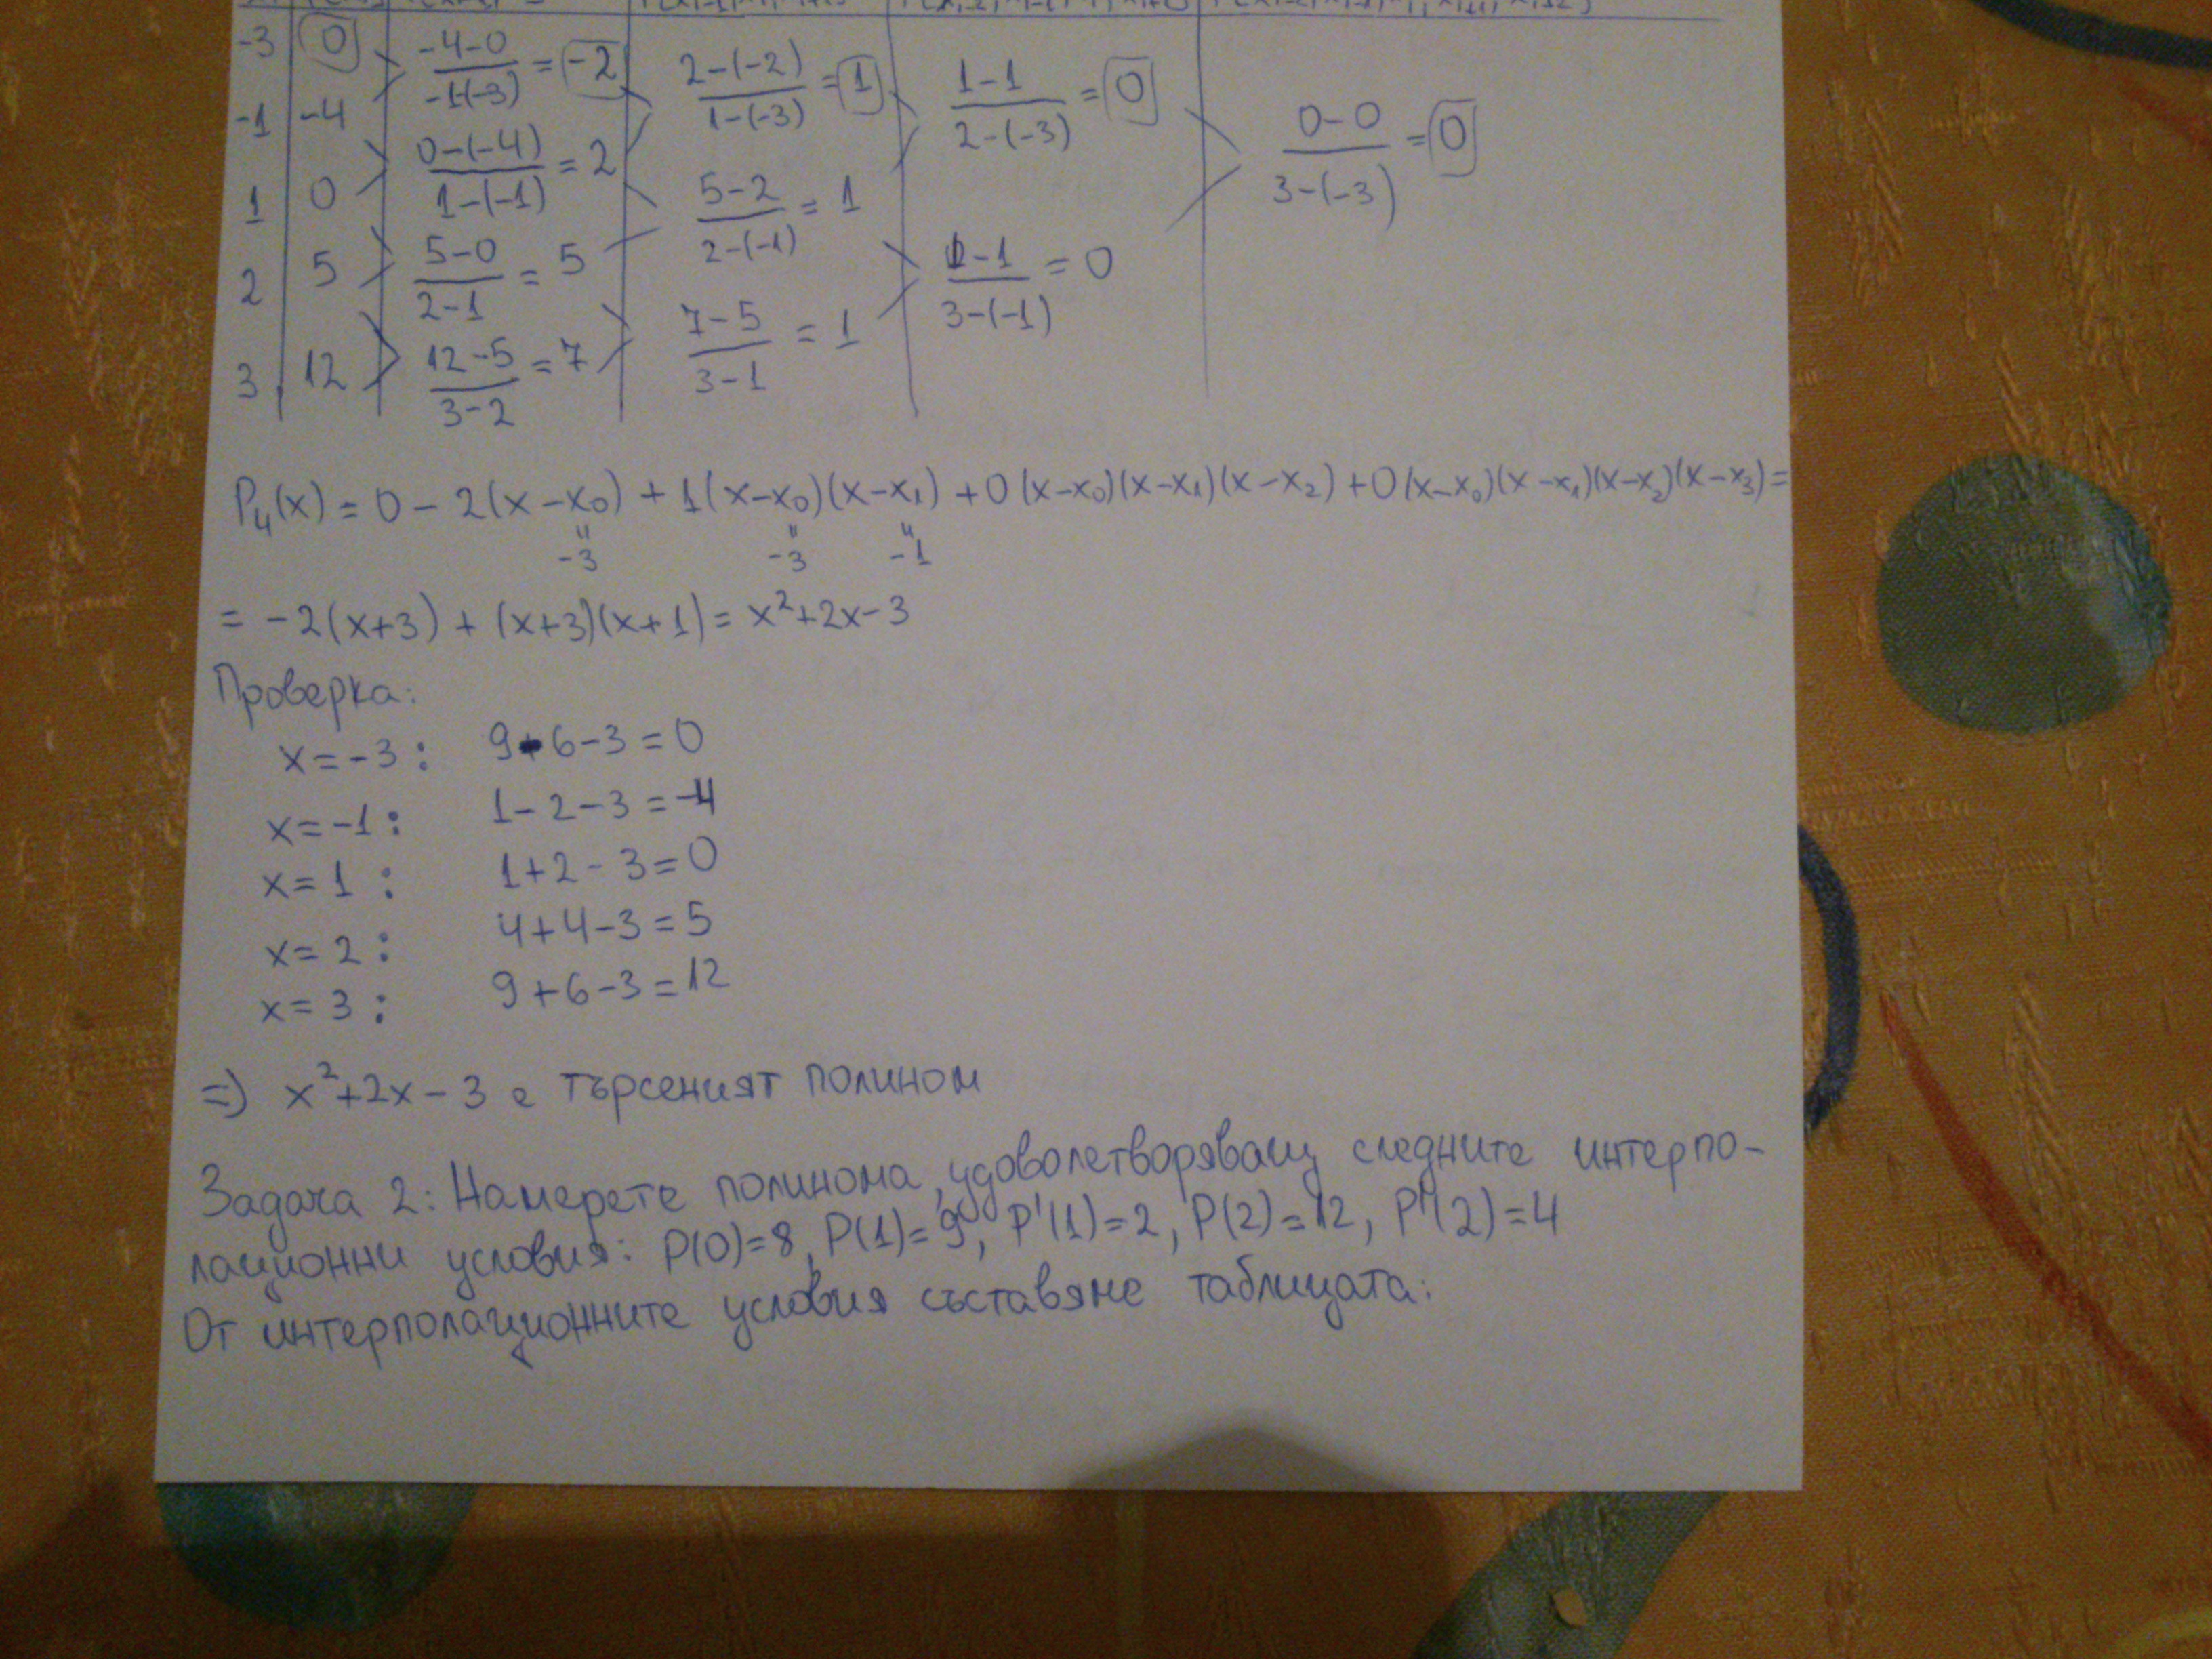 -3 0 -4-0/-1-(-3) = -2 2-(-2)/1-(-3) = 1 1-1/2-(-3) = 0 0-0/3-(-3) = 0
-1 -4 0-(-4)/1-(-1) = 2 5-2/2-(-1) = 1 1-1/3-(-1) = 0
1 0 5-0/2-1 = 5 7-5/3-1 = 1
2 5 12-5/3-2 = 7
3 12
P₄(x) = 0 - 2(x-x₀) + 1(x-x₀)(x-x₁) + 0(x-x₀)(x-x₁)(x-x₂) + 0(x-x₀)(x-x₁)(x-x₂)(x-x₃) =
" " "
-3 -3 -1
= -2(x+3) + (x+3)(x+1) = x²+2x-3
Проверка:
x=-3: 9-6-3=0
x=-1: 1-2-3=-4
x=1: 1+2-3=0
x=2: 4+4-3=5
x=3: 9+6-3=12
=) x²+2x-3 е търсеният полином
Задача 2: Намерете полинома, удоволетворяващ следните интерпо-
лационни условия: P(0)=8, P(1)=9, P'(1)=2, P(2)=12, P'(2)=4
От интерполационните условия съставяне таблицата: